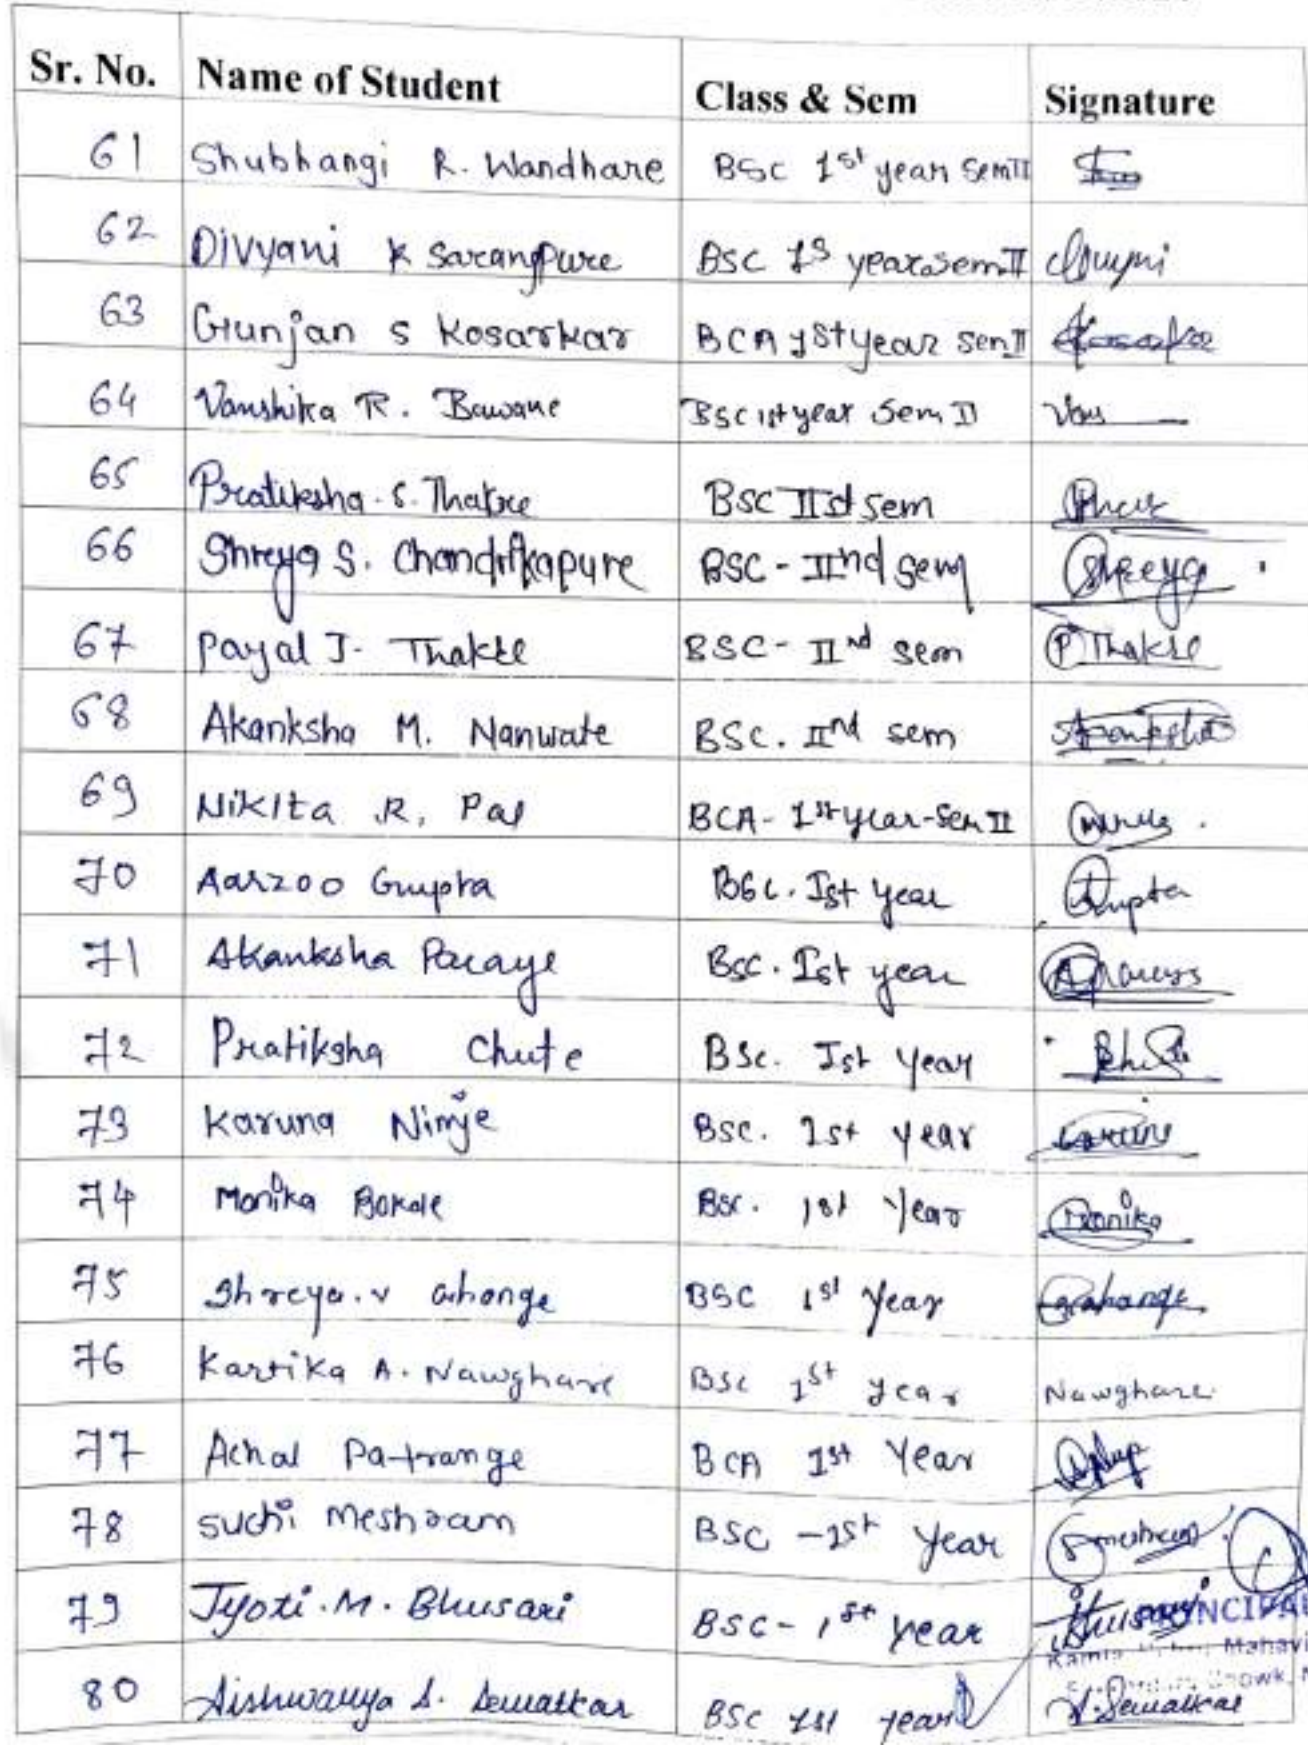 Sr. No. Name of Student Class & Sem Signature
61 Shubhangi R. Wandhare BSC 1st year Sem II
62 Divyani K Sarangpure BSC 1S year sem II
63 Gunjan S Kosarkar BCA 1st year sem II
64 Vanshika R. Bawane BSC 1st year Sem II Vans
65 Pratiksha. S. Thakre BSC IIsd sem
66 Shreya S. Chandrikapure BSC - IInd sem Shreya
67 Payal J. Thakre BSC - IInd sem P Thakre
68 Akanksha M. Nanwate BSC. IInd sem Akanksha
69 Nikita R. Pal BCA - 1st year - Sem II
70 Aarzoo Gupta BSC. Ist year Gupta
71 Akanksha Paraye Bsc. Ist year
72 Pratiksha Chute BSc. Ist year
73 Karuna Nimje BSC. 1st year
74 Monika Bokde BSC. 1st Year Monika
75 Shreya. V Ghonge BSC 1st Year
76 Kartika A. Nawghare BSC 1st year Nawghare
77 Achal Patrange BCA 1st Year
78 suchi Meshram BSC - 1st Year S meshram
79 Jyoti. M. Bhusari BSC - 1st year Bhusari
PRINCIPAL
80 Aishwarya S. Dewalkar BSC 1st year